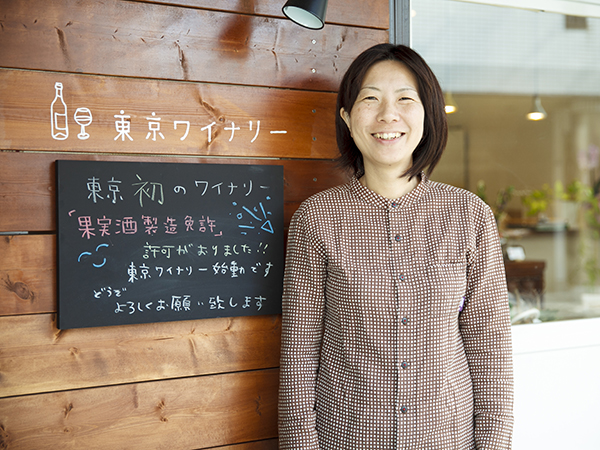 東京ワイナリー
東京初のワイナリー
「果実酒製造免許」
許可がおりました!!
東京ワイナリー始動です
どうぞ
よろしくお願い致します